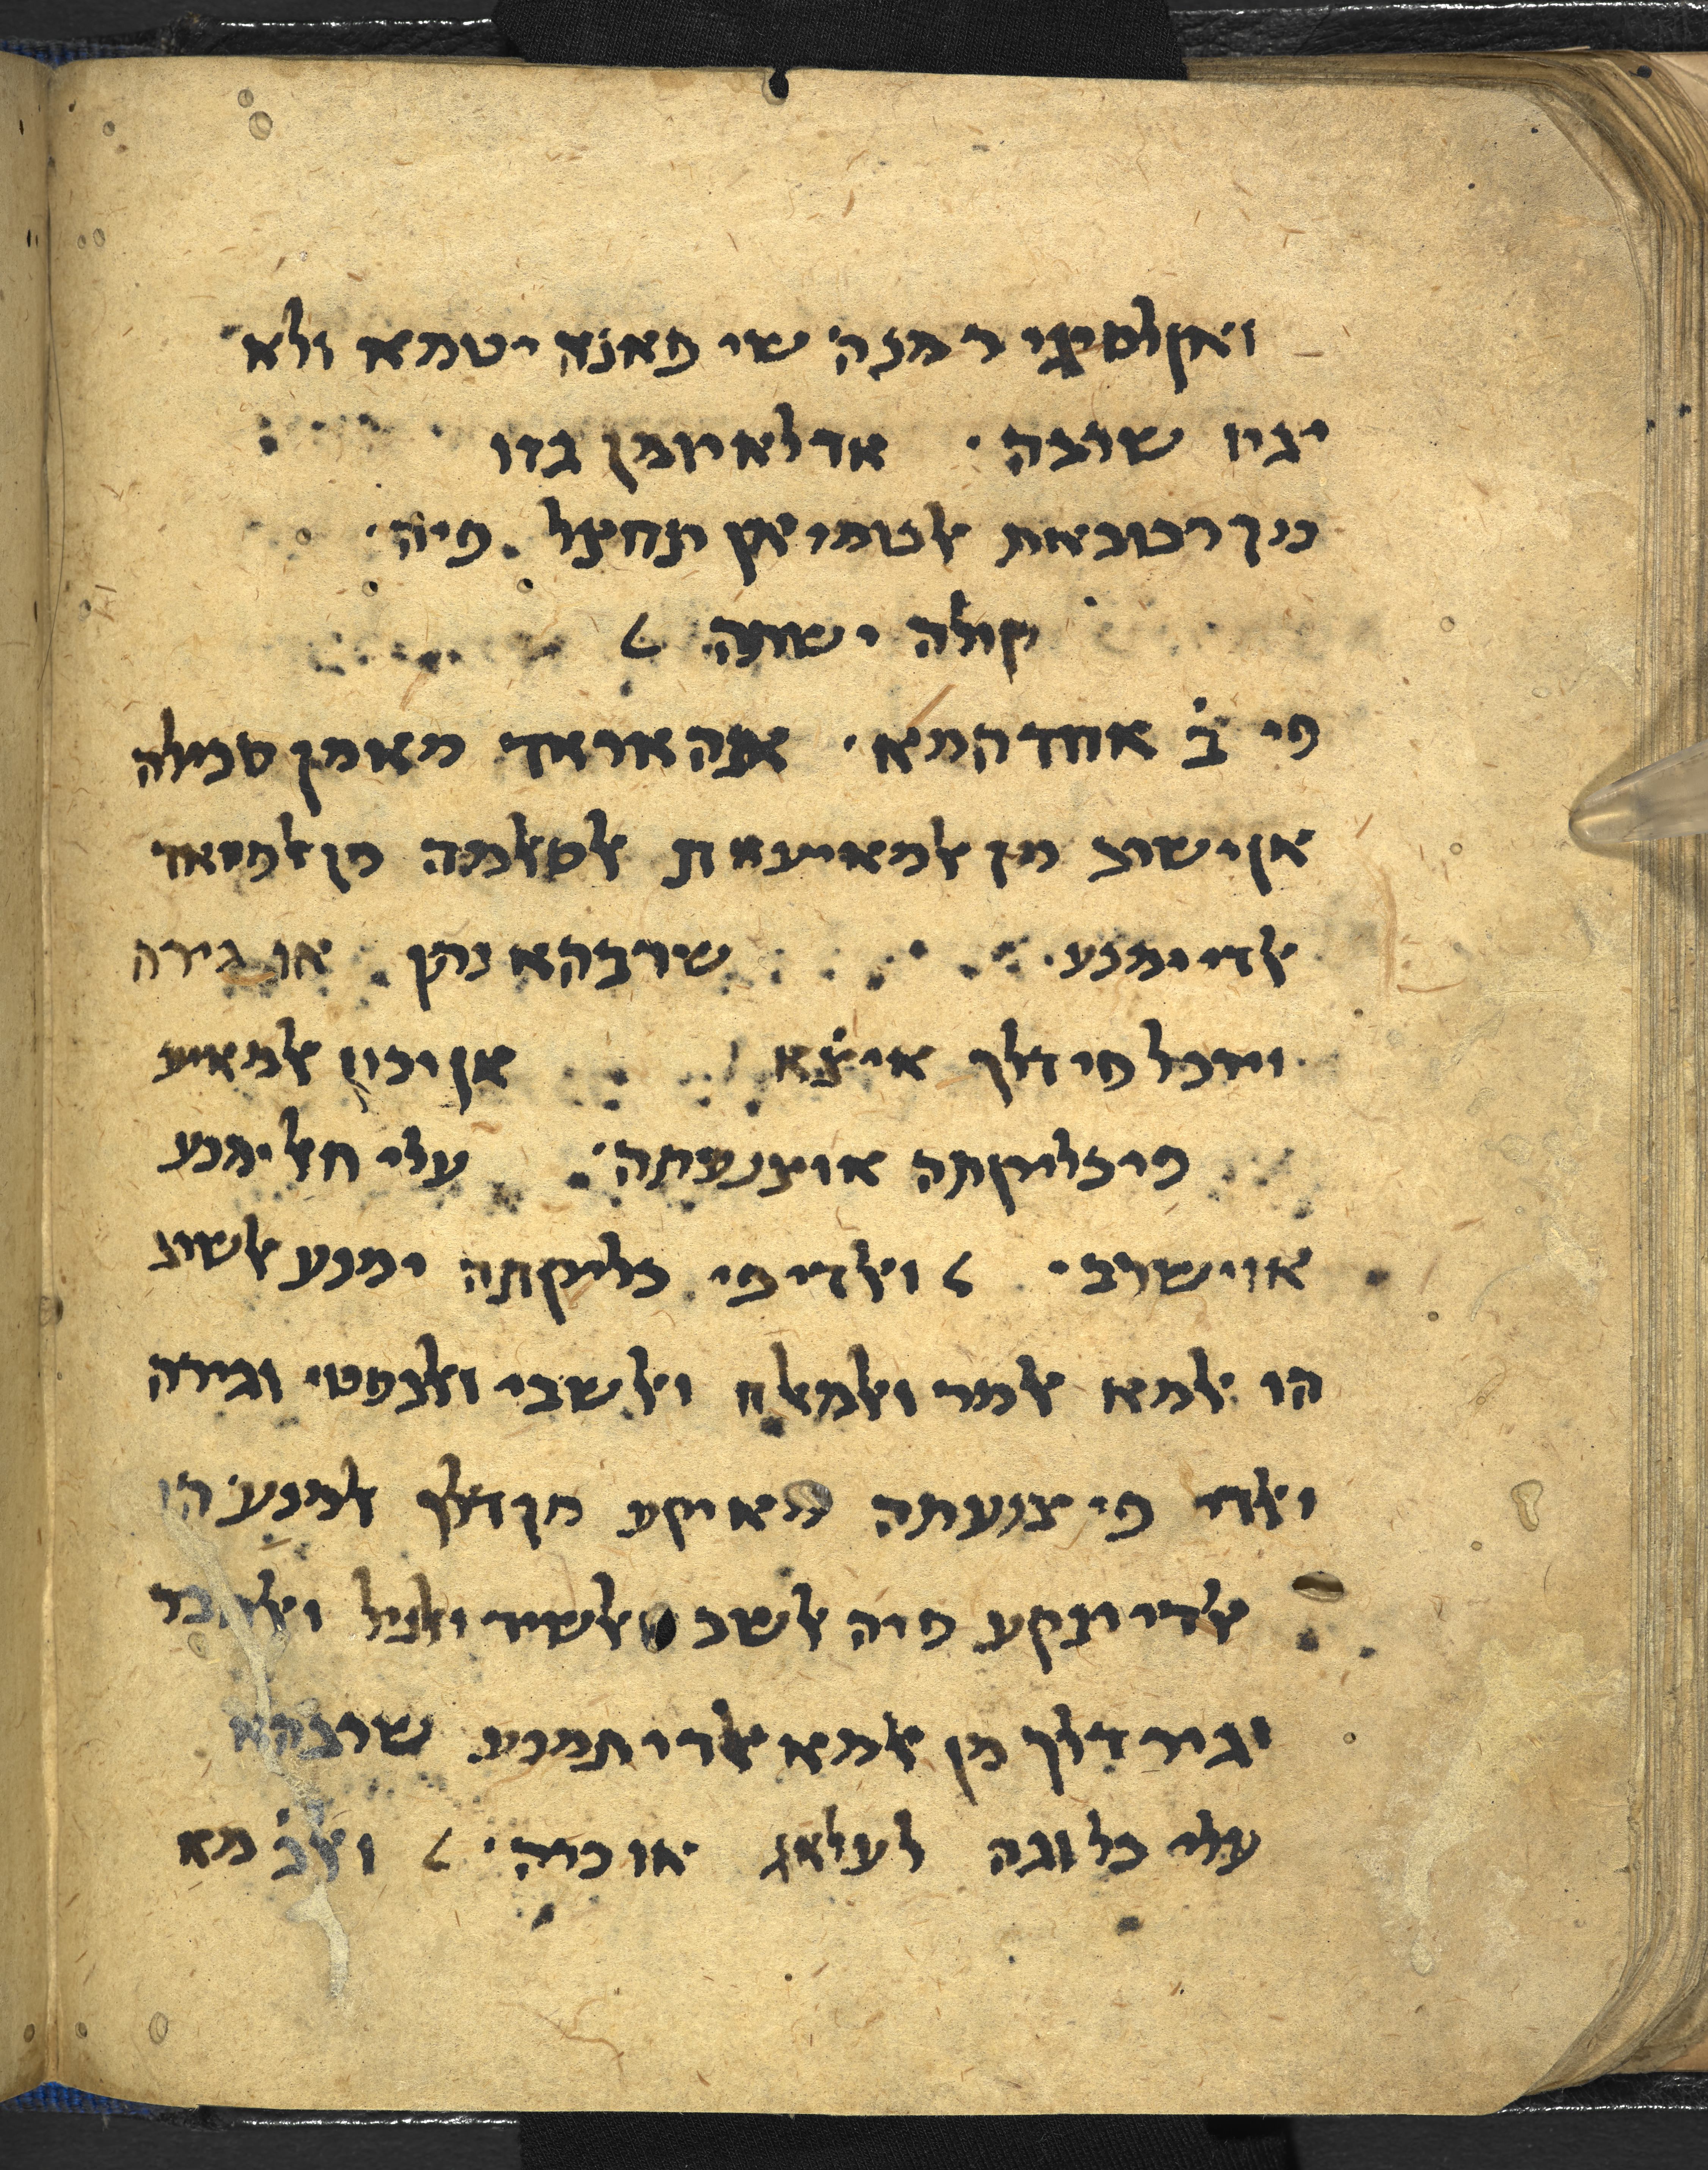 ואן לם יגי רמזה שי פאנה יטמא ולא
יגוז שרבה אד לא יומן בזו
כנך רטובאת אלטמי אן תחצל פיה
קולה ישתה
פי ב̇ אחדהמא אנה אראד מא מן סבילה
אן ישרב מן אלמאיעאת אלסאלמה מן אלמואד
אלדי ימנע שרבהא נהן או גירה
וידכל פי דלך איצ̇א אן יכון אלמאיע
פי כליקתה או צנעתה עלי חאל ימנע
אוישרבי ואלדי פי כליקתה ימנע אלשרב
הו אלמא אלמר ואלמאלח ואלשבי ואלנפטי וגירה
ואלדי פי צנעתה מא יקע מן דלך אלמנע הו
אלדי ינקע פיה אלשב ואלשיד ואלניל
וגיר דלך מן אלמא אלדי תמנע שרבהא
עלי כל וגה לעלאג או כרה ואלב̇ מא